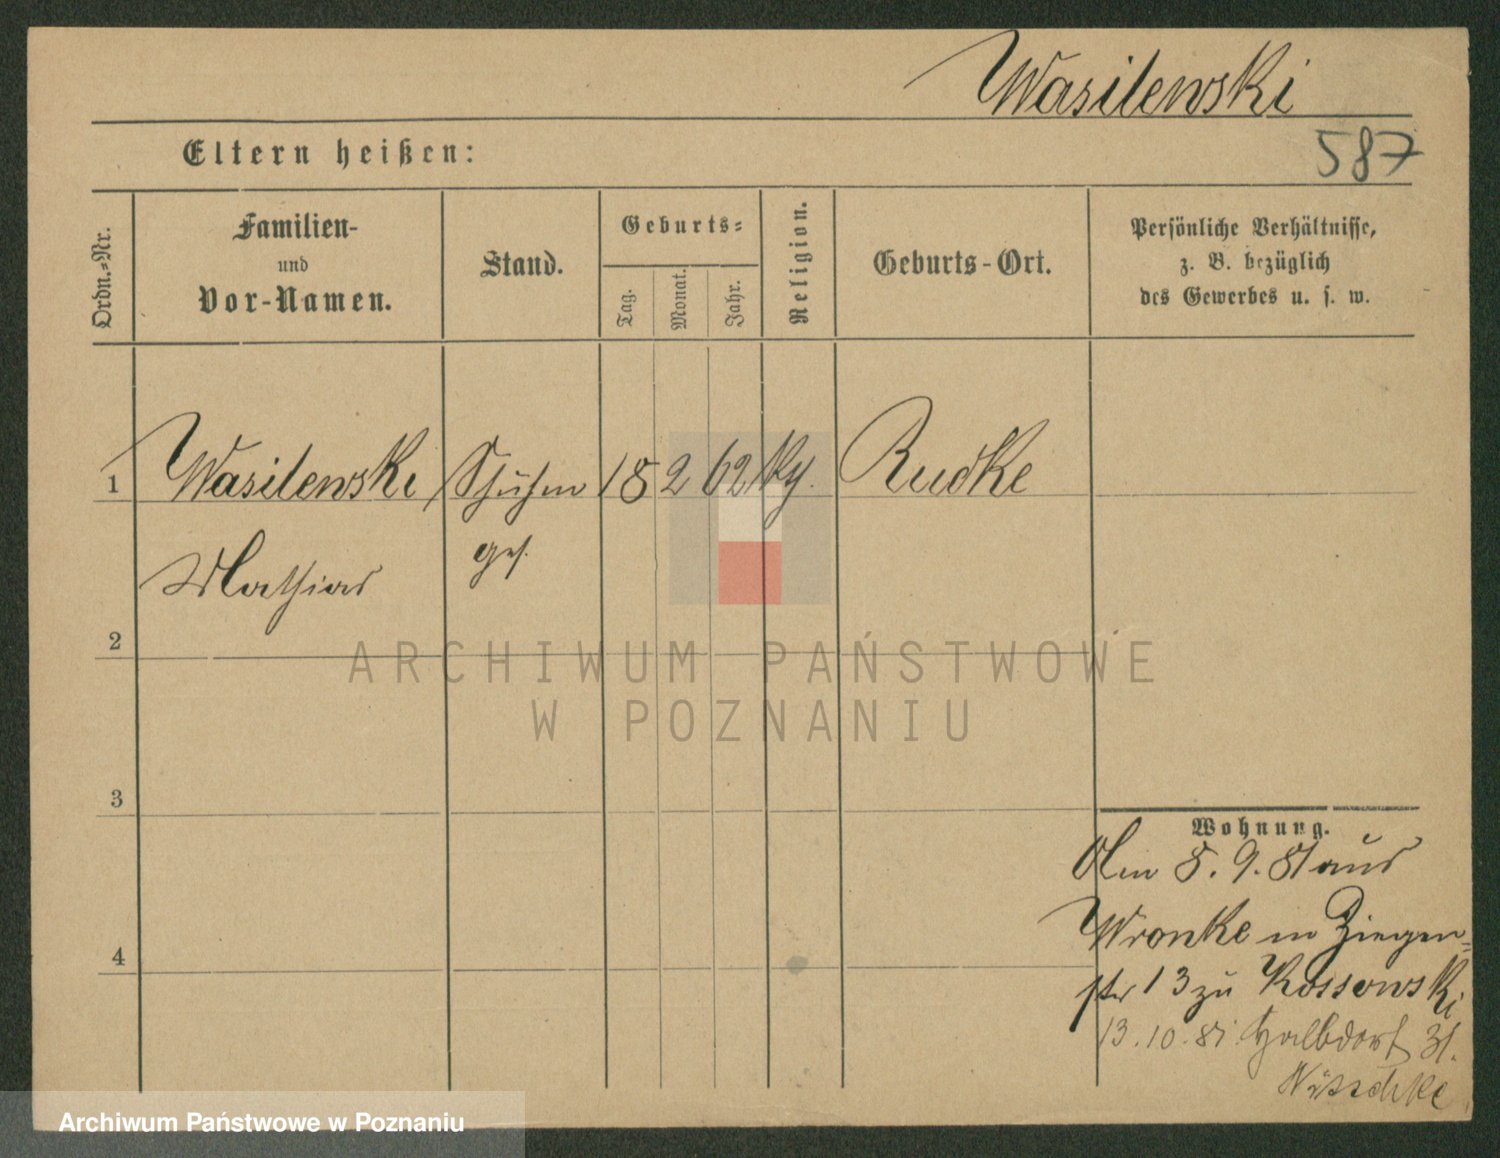 Wasilewski
587
Eltern heißen:
Ordn.=Nr.
Familien-
und
Vor-Namen.
Stand.
Geburts=
Tag.
Monat.
Jahr.
Religion.
Geburts-Ort.
Persönliche Verhältnisse,
z. B. bezüglich
des Gewerbes u. s. w.
1 Wasilewski Schuhm 18 2 62 Rudke
ges.
Mathias
2
ARCHIWUM PAŃSTWOWE
W POZNANIU
3
Wohnung.
Am 8. 9. 81 aus
Wronke in Ziegen=
4
str 13 zu Kossowski
13.10.81 Halbdorf 31.
Nitschke
Archiwum Państwowe w Poznaniu